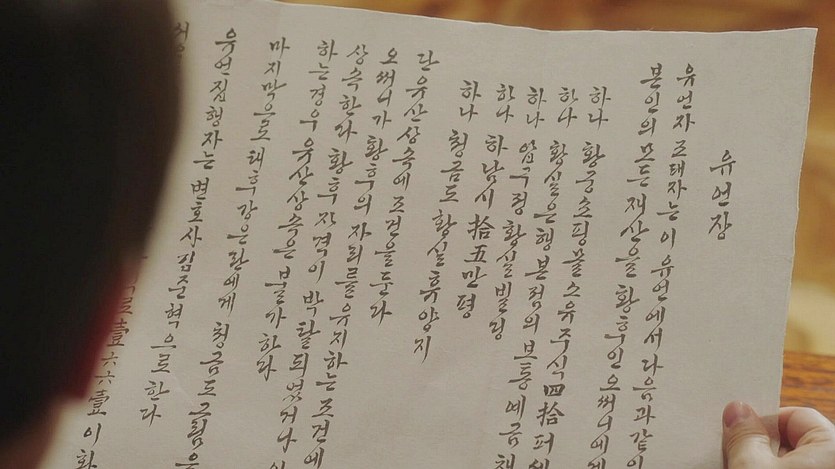 유언장
유언자 조태자는 이 유언에서 다음과 같이
본인의 모든 재산을 황후인 오써니에게
하나 황궁쇼핑몰 소유주식 四拾 퍼센
하나 황실은행 본점의 보통예금 채
하나 압구정 황실빌딩
하나 하남시 拾五만평
하나 청금도 황실 휴양지
단 유산상속에 조건을 둔다
오써니가 황후의 자리를 유지하는 조건에
상속한다 황후 자격이 박탈되었거나 이
하는 경우 유산상속은 불가하다
마지막으로 태후 강은란에게 청금도 그림은
유언집행자는 변호사 김준혁으로 한다
로 壹六六壹 이화